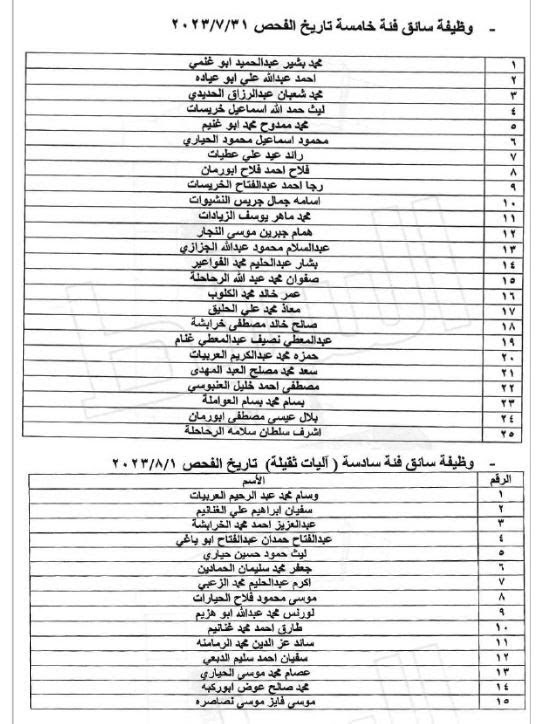 - وظيفة سائق فئة خامسة تاريخ الفحص ٢٠٢٣/٧/٣١
١ محمد بشير عبدالحميد ابو غنمي
٢ احمد عبدالله علي ابو عياده
٣ محمد شعبان عبدالرزاق الحديدي
٤ ليث حمد الله اسماعيل خريسات
٥ محمد ممدوح محمد ابو غنيم
٦ محمود اسماعيل محمود الحياري
٧ رائد عيد علي عطيات
٨ فلاح احمد فلاح ابورمان
٩ رجا احمد عبدالفتاح الخريسات
١٠ اسامه جمال جريس النشيوات
١١ محمد ماهر يوسف الزيادات
١٢ همام جبرين موسى النجار
١٣ عبدالسلام محمود عبدالله الجزازي
١٤ بشار عبدالحليم محمد الفواعير
١٥ صفوان محمد عبد الله الرحاحلة
١٦ عمر خالد محمد الكلوب
١٧ معاذ محمد علي الحليق
١٨ صالح خالد مصطفى خرابشة
١٩ عبدالمعطي نصيف عبدالمعطي غنام
٢٠ حمزه محمد عبدالكريم العربيات
٢١ سعد محمد مصلح العبد المهدى
٢٢ مصطفى احمد خليل العنبوسي
٢٣ بسام محمد بسام العواملة
٢٤ بلال عيسى مصطفى ابورمان
٢٥ اشرف سلطان سلامه الرحاحلة
- وظيفة سائق فئة سادسة ( آليات ثقيلة) تاريخ الفحص ٢٠٢٣/٨/١
الرقم الأسم
١ وسام محمد عبد الرحيم العربيات
٢ سفيان ابراهيم علي الغنانيم
٣ عبدالعزيز احمد محمد الخرابشة
٤ عبدالفتاح حمدان عبدالفتاح ابو ياغي
٥ ليث حمود حسين حياري
٦ جعفر محمد سليمان الحمادين
٧ اكرم عبدالحليم محمد الزعبي
٨ موسى محمود فلاح الحيارات
٩ لورنس محمد عبدالله ابو هزيم
١٠ طارق احمد محمد غنانيم
١١ سائد عز الدين محمد الرمامنه
١٢ سفيان احمد سليم الدبعي
١٣ عصام محمد موسى الحياري
١٤ محمد صالح عوض ابوركبه
١٥ موسى فايز موسى نصاصره